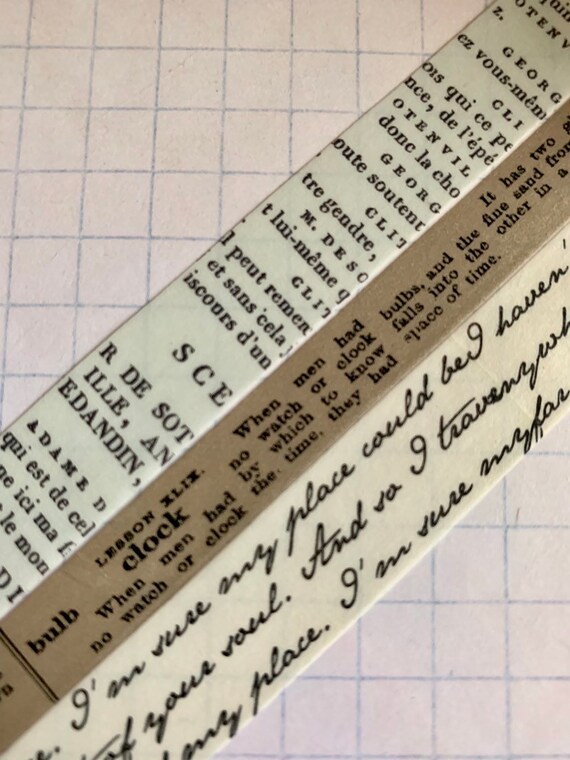 z.
OTENV
GEORG
ez vous-mêm
CLI
ois qui ce pe
nce, de l'épé
OTENVIL
donc la cho
GEORG
oute soutent
CLIT
tre gendre,
M. DE SO
t lui-même q
CLIT
l peut remer
et sans cela
iscours d'un
SCE
R DE SOT
ILLE, AN
EDANDIN,
ADAME D
qui est de cel
ne ici ma f
e le mon
DI
bulb
LESSON XLIX.
clock
When men had
no watch or clock
When men had bulbs, and the fine sand from
no watch or clock falls into the other in a
by which to know space of time.
the time, they had
It has two gl
I'm sure my place could bed haven'
t of your soul. And so I traveny wh
d my place. I'm sure my far